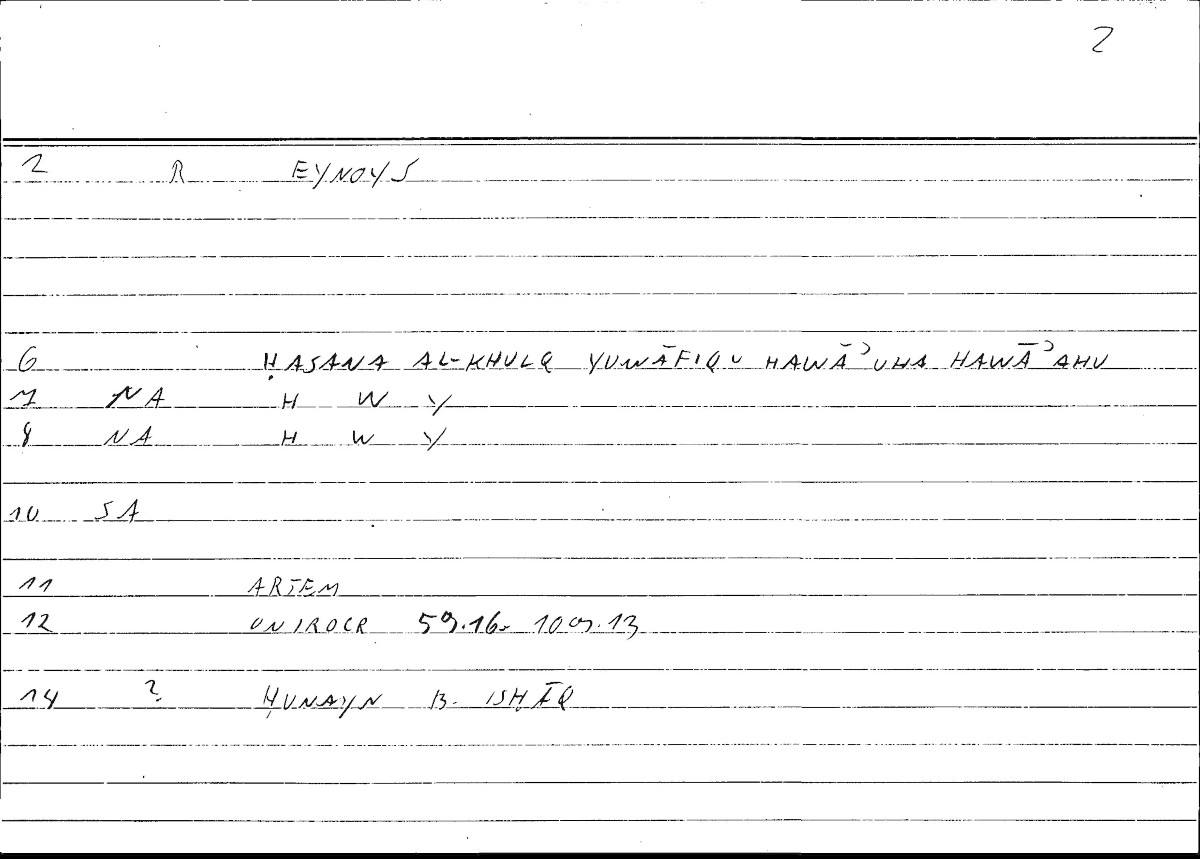 2
2 R EYNOYS
6 ḤASANA AL-KHULQ YUWĀFIQU HAWĀʾUHA HAWĀʾAHU
7 NA H W Y
8 NA H W Y
10 SA
11 ARTEM
12 ONIROCR 59.16- 109.13
14 ? ḤUNAYN B. ISḤĀQ